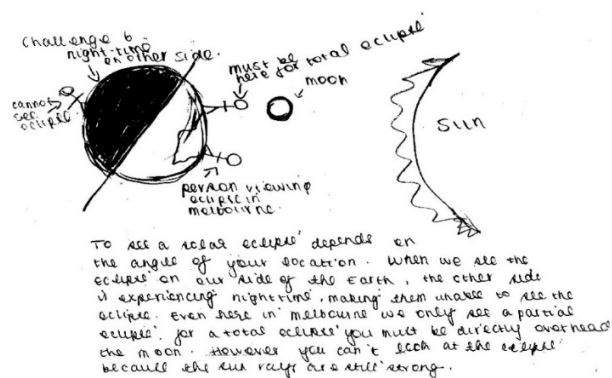 Challenge 6 -
night-time
on other side.
must be
here for total eclipse
moon
cannot
see
eclipse
Sun
person viewing
eclipse in
melbourne.
To see a solar eclipse depends on
the angle of your location. When we see the
eclipse on our side of the Earth, the other side
is experiencing nighttime, making them unable to see the
eclipse. Even here in melbourne we only see a partial
eclipse, for a total eclipse you must be directly overhead
the moon. However you can't look at the eclipse
because the sun rays are still strong.